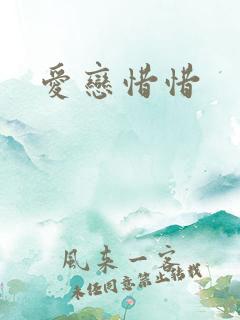 愛戀惜惜
風來一客
未經同意禁止轉載